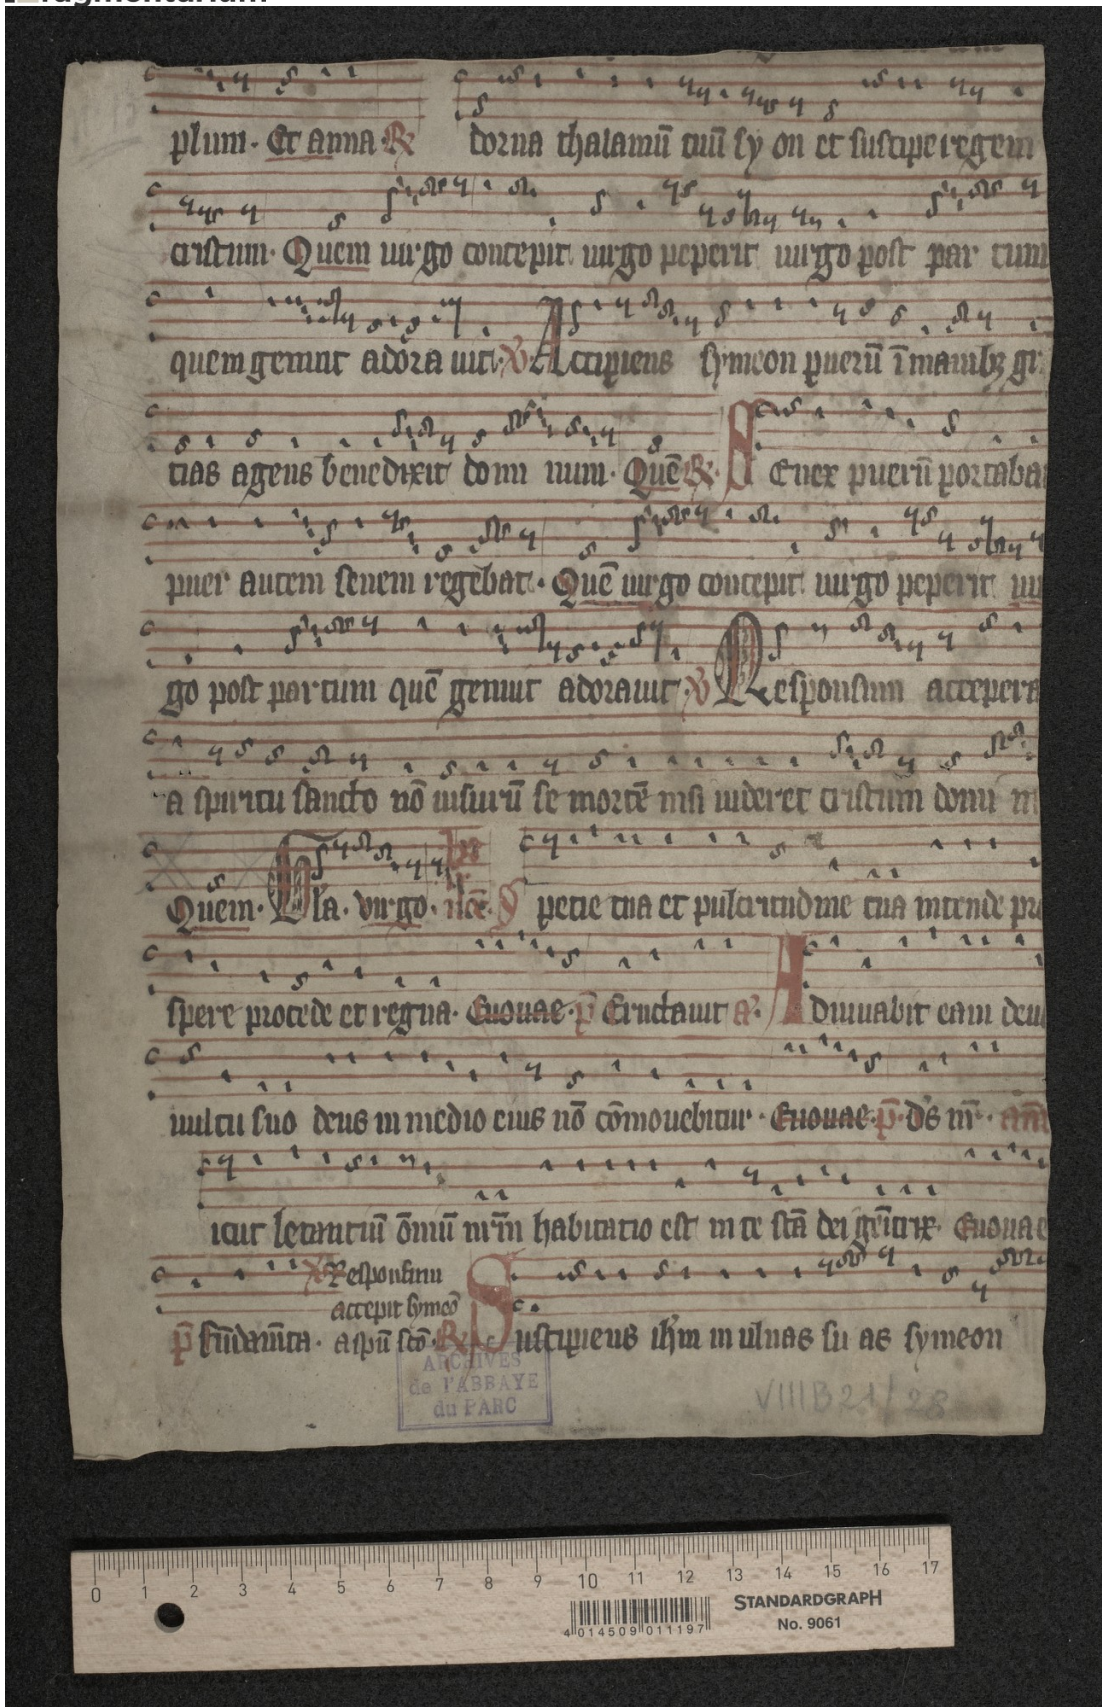 plum. Et anna. R dorna thalamū tuū sy on et suscipe regem
cristum. Quem uirgo concepit uirgo peperit uirgo post par tum
quem genuit adora uit. V Accipiens symeon puerū ī manibꝫ gr
cias agens benedixit domi num. Quē R. Senex puerū portaba
puer autem senem regebat. Quē uirgo concepit uirgo peperit ui
go post partum quē genuit adorauit. V Responsum accepera
a spiritu sancto nō uisurū se mortē nisi uideret cristum domi
Quem. Gla. virgo. Specie tua et pulcritudine tua intende pro
spere procede et regna. Euouae. p̄ Eructauit a. Adiuuabit eam deus
uultu suo deus in medio eius nō cōmouebitur. Euouae. p̄. Ds nr̄. añ
icut letantiū ōmiū nr̄m habitatio est in te scā dei geīcrix. Euouae
V Responsum
accepit symeō
p̄ Fūdamīta. a spū scō. R Suscipiens ihm in ulnas su as symeon
ARCHIVES
de l'ABBAYE
du PARC
VIIIB21/28
0 1 2 3 4 5 6 7 8 9 10 11 12 13 14 15 16 17
STANDARDGRAPH
No. 9061
4 014509 011197